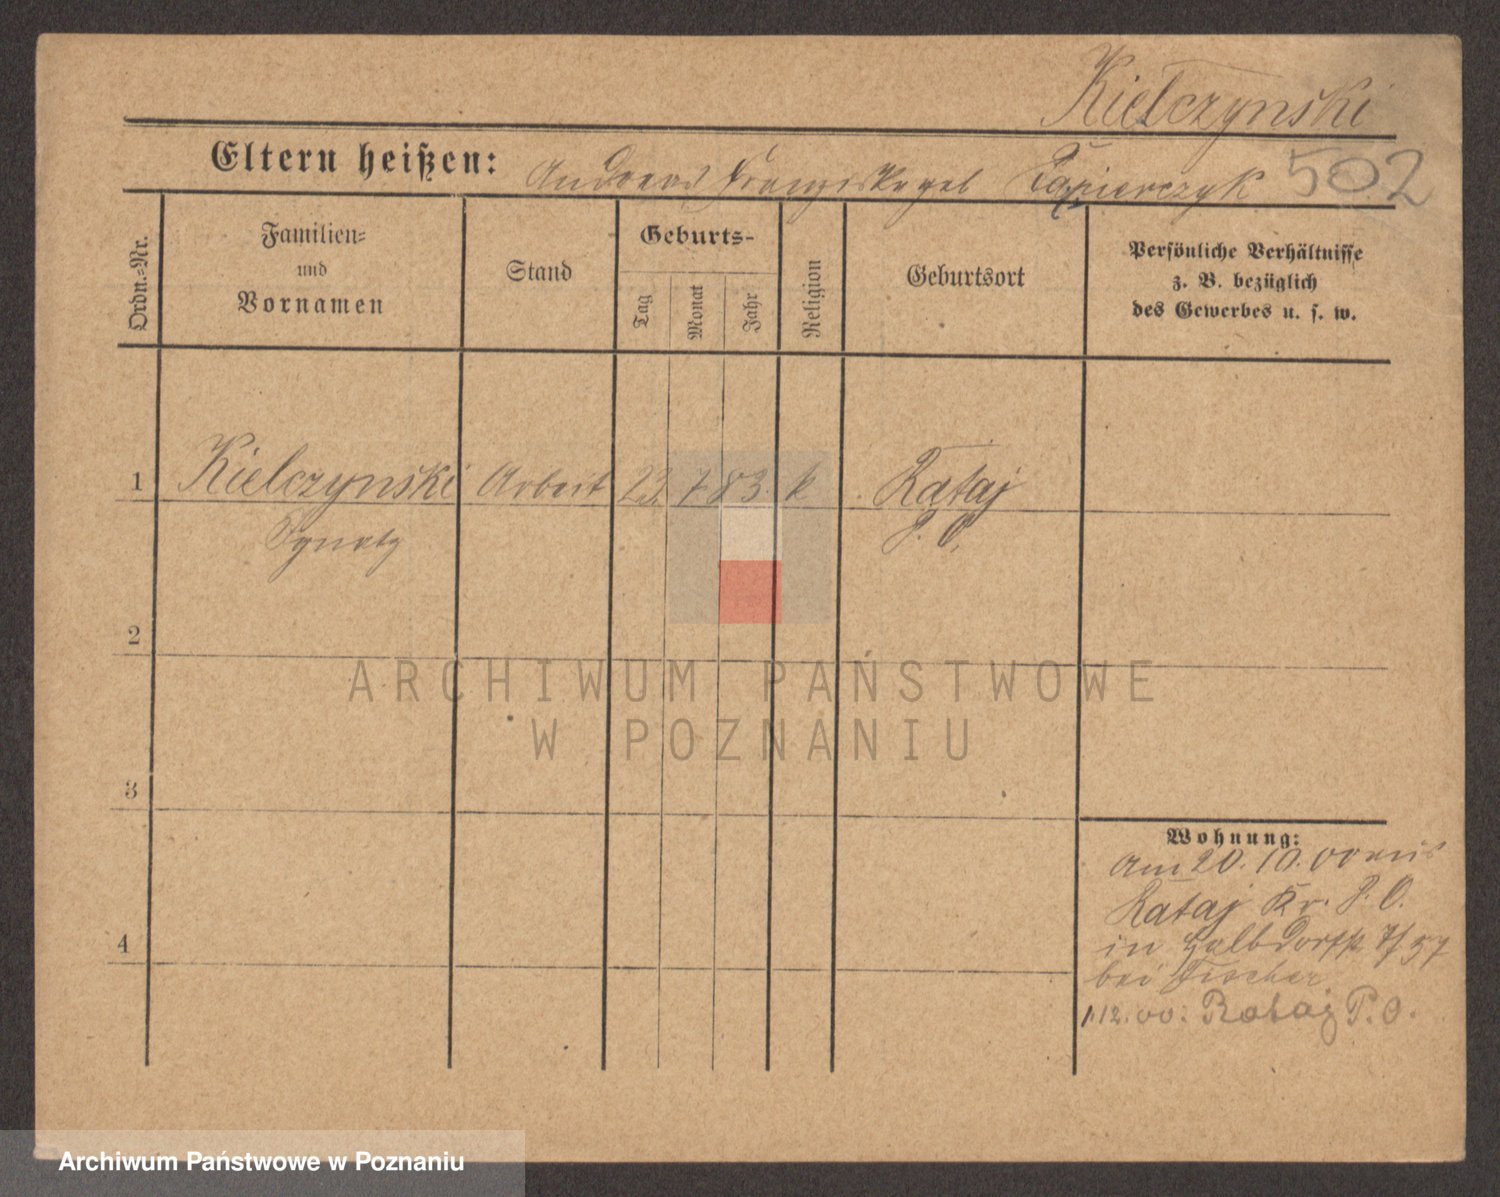 Kielczynski
Eltern heißen: Andreas Franziska geb Kapierczyk 502
Ordn.-Nr.
Familien-
und
Vornamen
Stand
Geburts-
Tag
Monat
Jahr
Religion
Geburtsort
Persönliche Verhältnisse
z. B. bezüglich
des Gewerbes u. s. w.
1 Kielczynski Arbeit 23. 7 83. k Rataj
Ignatz P. O.
2
ARCHIWUM PAŃSTWOWE
W POZNANIU
3
4
Wohnung:
Am 20. 10. 00 aus
Rataj Kr. P. O.
in Halbdorfstr 7/37
bei Fischer
1.12.00: Rataj P. O.
Archiwum Państwowe w Poznaniu